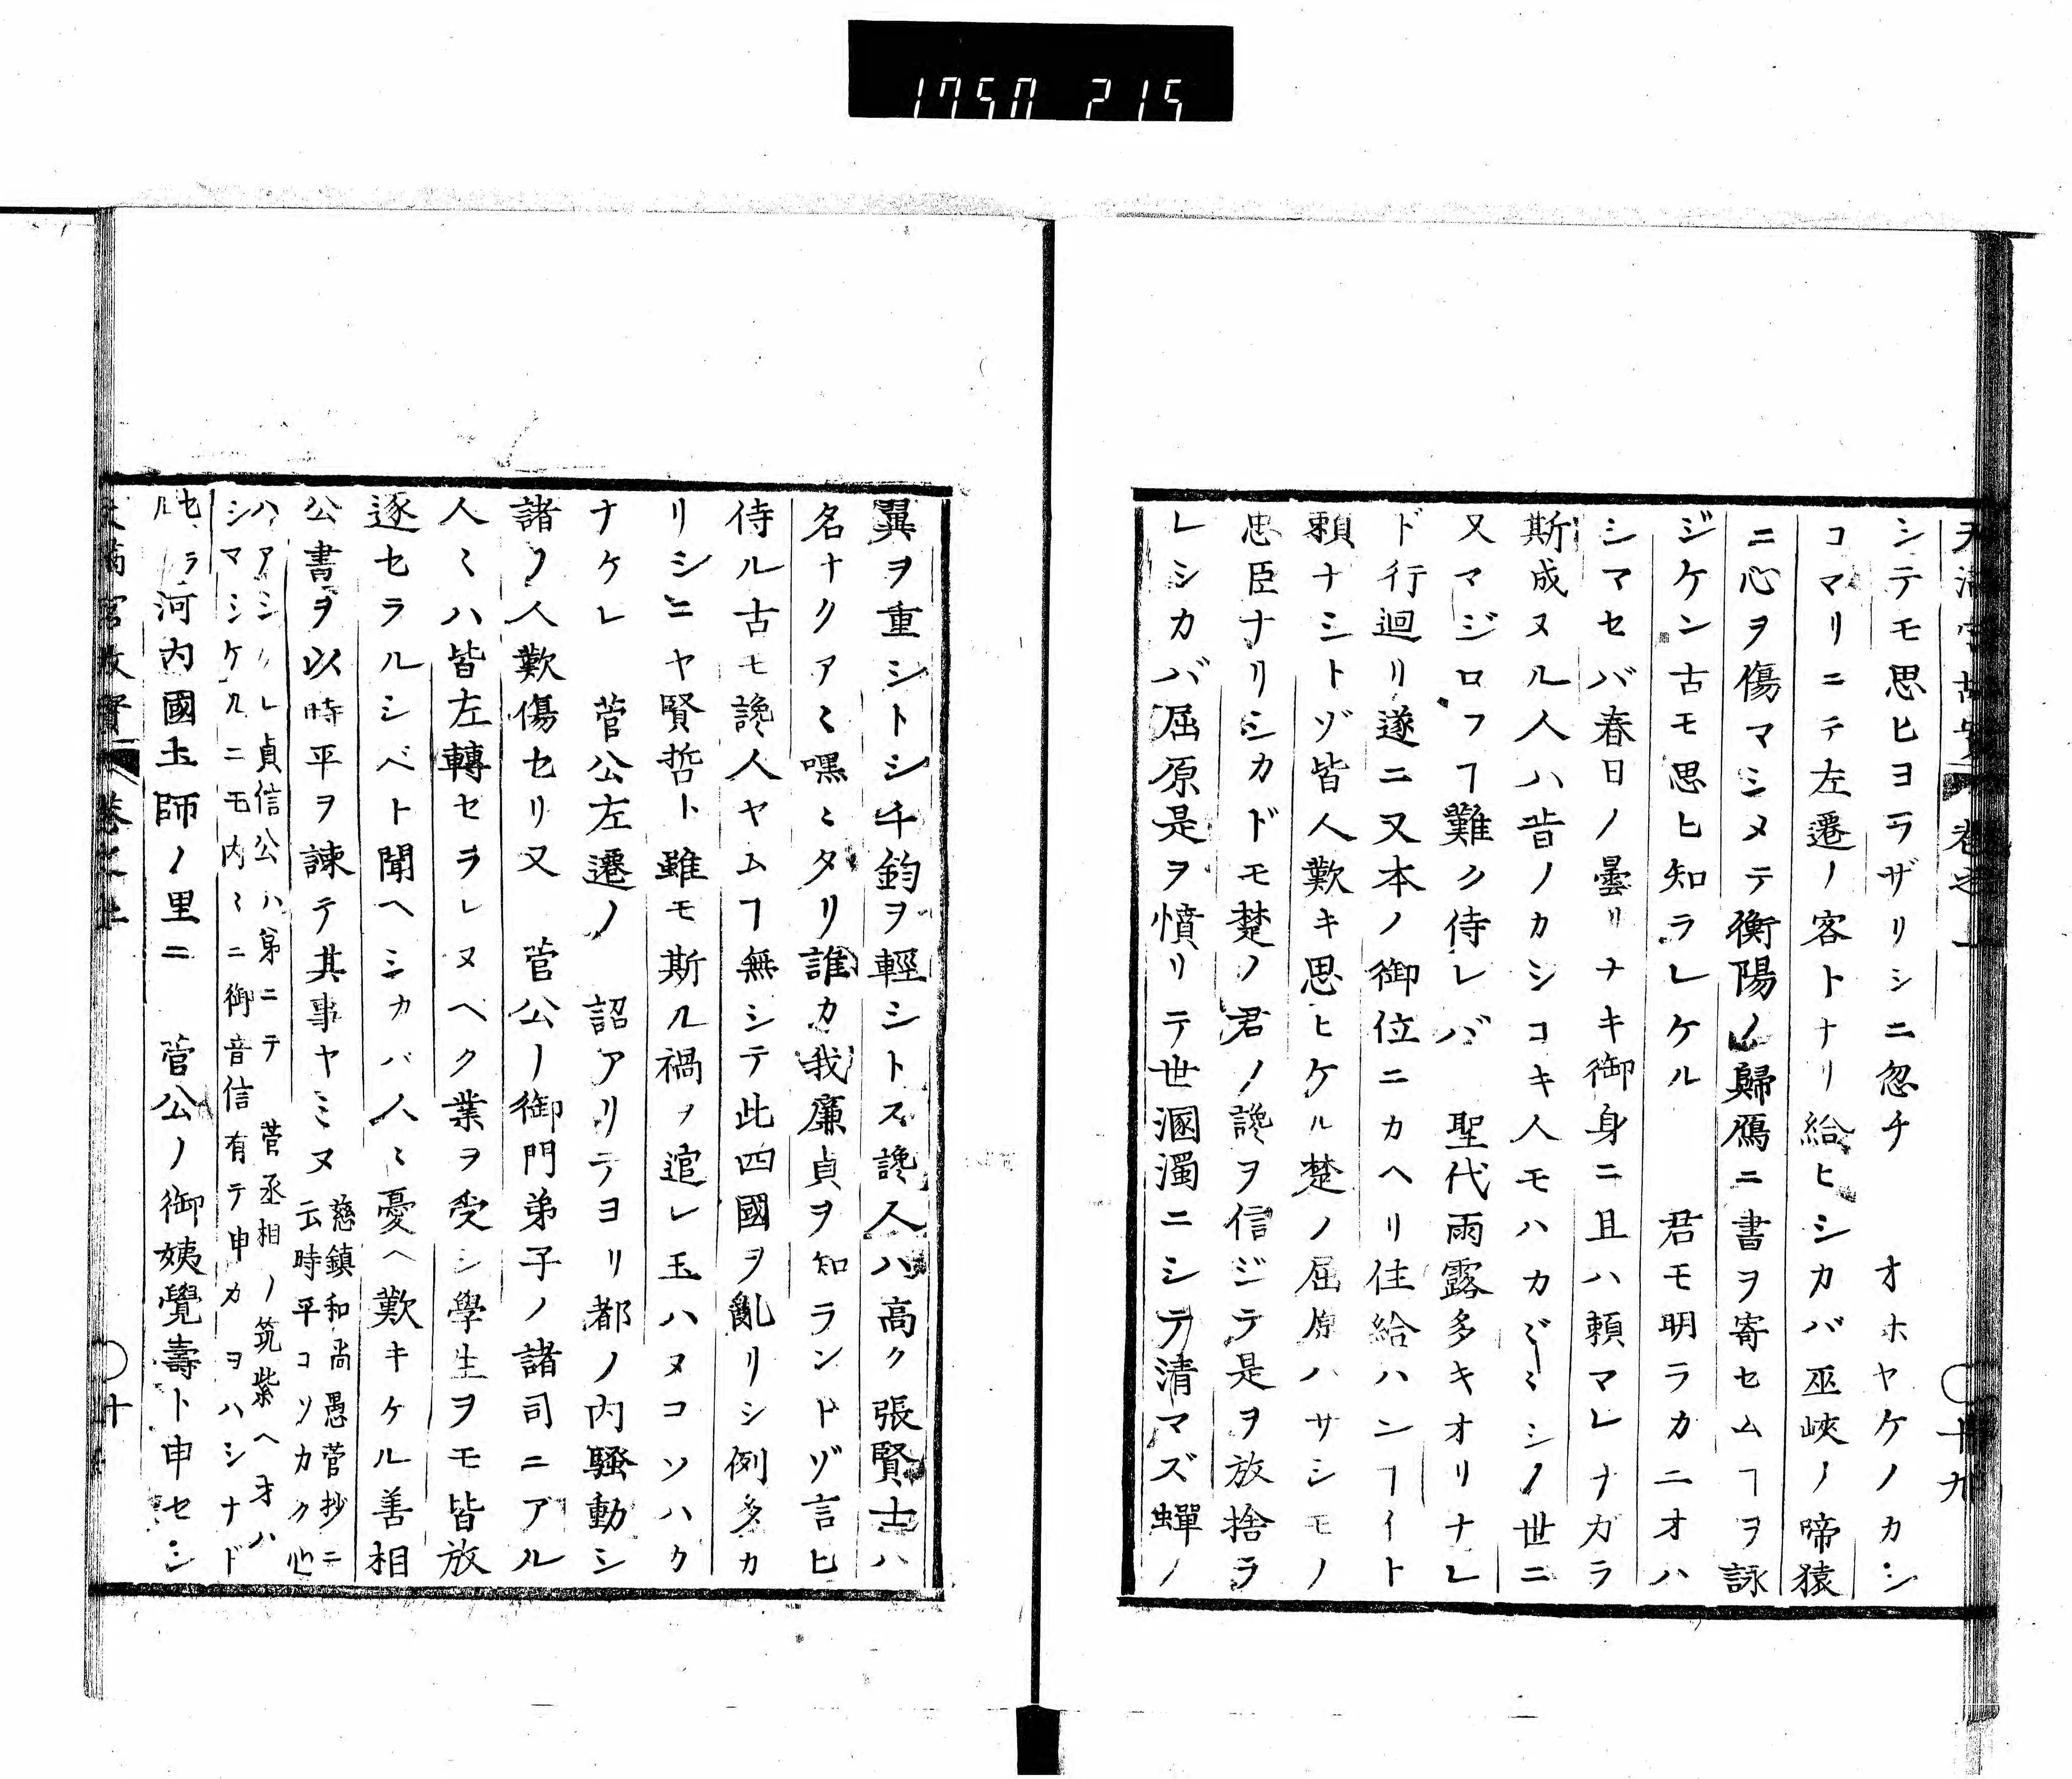 1750 215
天満宮故實 卷之上 十九
シテモ思ヒヨラザリシニ忽チ　オホヤケノカシ
コマリニテ左遷ノ客トナリ給ヒシカバ巫峽ノ啼猿
ニ心ヲ傷マシメテ衡陽ノ歸鴈ニ書ヲ寄セムヿヲ詠
ジケン古モ思ヒ知ラレケル　君モ明ラカニオハ
シマセバ春日ノ曇リナキ御身ニ且ハ頼マレナガラ
斯成ヌル人ハ昔ノカシコキ人モハカ〴〵シノ世ニ
又マジロフヿ難ク侍レバ　聖代雨露多キオリナレ
ド行迴リ遂ニ又本ノ御位ニカヘリ住給ハンヿイト
頼ナシトゾ皆人歎キ思ヒケル楚ノ屈原ハサシモノ
忠臣ナリシカドモ楚ノ君ノ讒ヲ信ジテ是ヲ放捨ラ
レシカバ屈原是ヲ憤リテ世溷濁ニシテ清マズ蟬ノ
翼ヲ重シトシ千鈞ヲ輕シトス讒人ハ高ク張賢士ハ
名ナクアヽ嘿ミタリ誰カ我廉貞ヲ知ランドゾ言ヒ
侍ル古モ讒人ヤムヿ無シテ此四國ヲ亂リシ例多カ
リシニヤ賢哲ト雖モ斯ル禍ヲ逭レ玉ハヌコソハク
ナケレ　菅公左遷ノ　詔アリテヨリ都ノ内騷動シ
諸ノ人歎傷セリ又　菅公ノ御門弟子ノ諸司ニアル
人〻ハ皆左轉セラレヌヘク業ヲ受シ學生ヲモ皆放
逐セラルシベト聞ヘシカバ人〻憂ヘ歎キケル善相
公書ヲ以時平ヲ諫テ其事ヤミヌ慈鎮和尚愚菅抄ニ
云時平コソカク心
ハアシケレ貞信公ハ弟ニテ　菅丞相ノ筑紫ヘオハ
シマシケルニモ内〻ニ御音信有テ申カヨハシナド
セラル河内國土師ノ里ニ　菅公ノ御姨覺壽ト申セシ
天満宮故實 卷之上 十